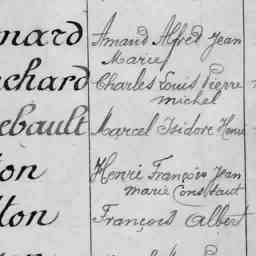 nard Amand Alfred Jean
Marie
chard Charles Louis Pierre
Michel
ebault Marcel Isidore Henri
on Henri François Jean
Marie Constant
lton François Albert